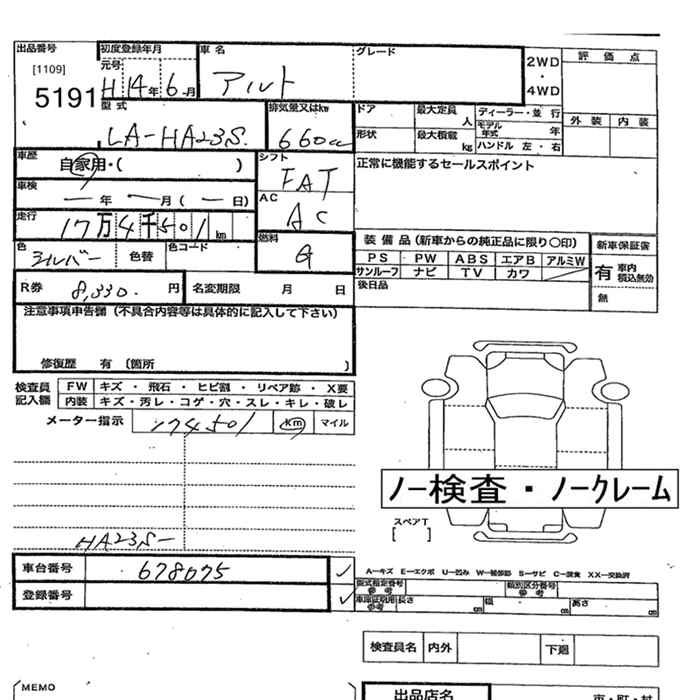 出品番号 初度登録年月 車名 グレード
[1109] 元号
5191 H 14年 6月 アルト
2WD・4WD 評価点
型式 排気量又はkw ドア 最大定員 人 ディーラー・並行 外装 内装
LA-HA23S. 660cc
形状 最大積載 kg モデル年式 年
ハンドル 左・右
車歴 自家用・( ) シフト FAT 正常に機能するセールスポイント
車検 ー年 ー月(ー日) AC AC
走行 17万4千501 km
色 シルバー 色替 色コード 燃料 G
装備品(新車からの純正品に限り〇印) 新車保証書
PS PW ABS エアB アルミW
サンルーフ ナビ TV カワ
有 車内積込無効
無
R券 8,330. 円 名変期限 月 日 後日品
注意事項申告欄(不具合内容等は具体的に記入して下さい)
修復歴 有 〔箇所 〕
検査員記入欄 FW キズ・飛石・ヒビ割・リペア跡・X要
内装 キズ・汚レ・コゲ・穴・スレ・キレ・破レ
メーター指示 174501 km マイル
ノー検査・ノークレーム
スペアT
[ ]
HA23S-
車台番号 678075
登録番号
A-キズ E-エクボ U-凹み W-補修跡 S-サビ C-腐食 XX-交換済
型式指定番号 参考 類別区分番号 参考
車庫証明用 参考 長さ cm 幅 cm 高さ cm
検査員名 内外 下廻
MEMO 出品店名 市・町・村